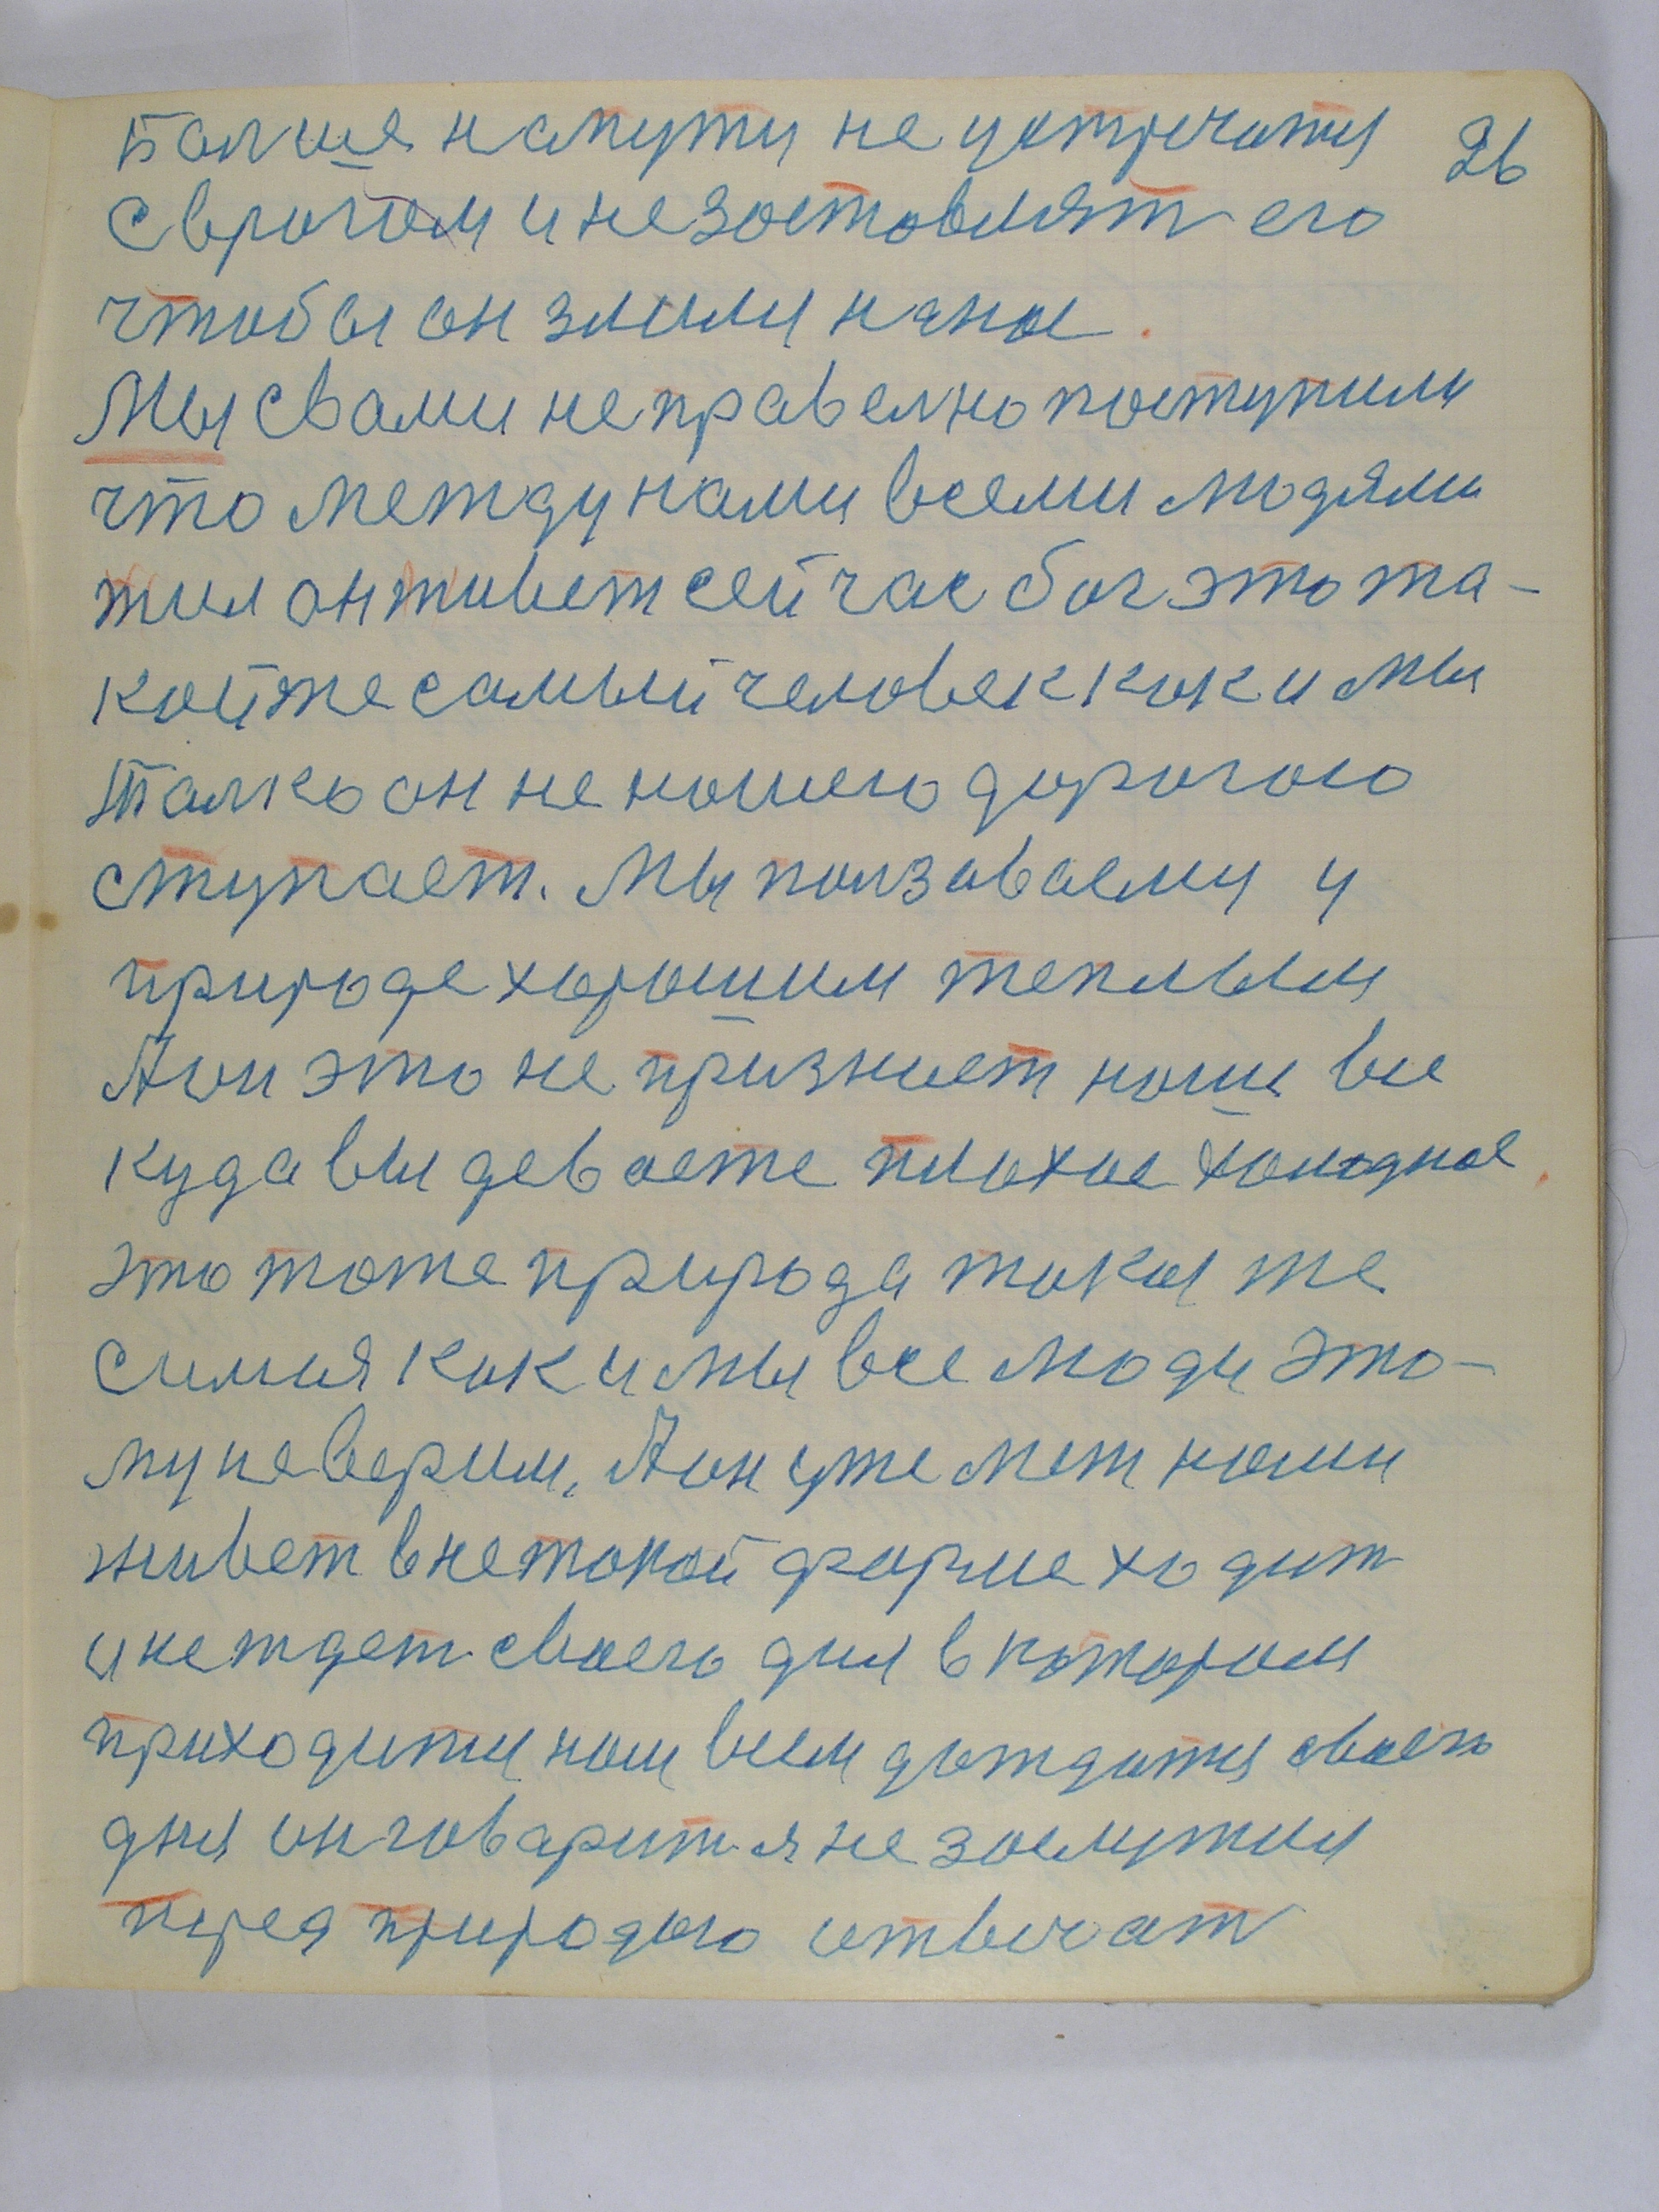 Болше напути не устречатся 26
с врагом и не заставлят его
чтобы он злился на нас.
Мы свами неправелно поступили
что между нами всеми людями
жил он живет сейчас бог это та-
кой же самый человек как и мы
Толко он не нашею дорогою
ступает. Мы ползоваемся у
природе хорошим теплым
А он это не признает наше все
куда вы деваете плохое холодное.
это тоже природа такая же
самая как и мы все люди это-
му не верим, А он уже меж нами
живет в не такой форме ходит
и не ждет своего дня в котором
приходится нам всем дождатся своего
дня он говарит я не заслужил
перед природою отвечат